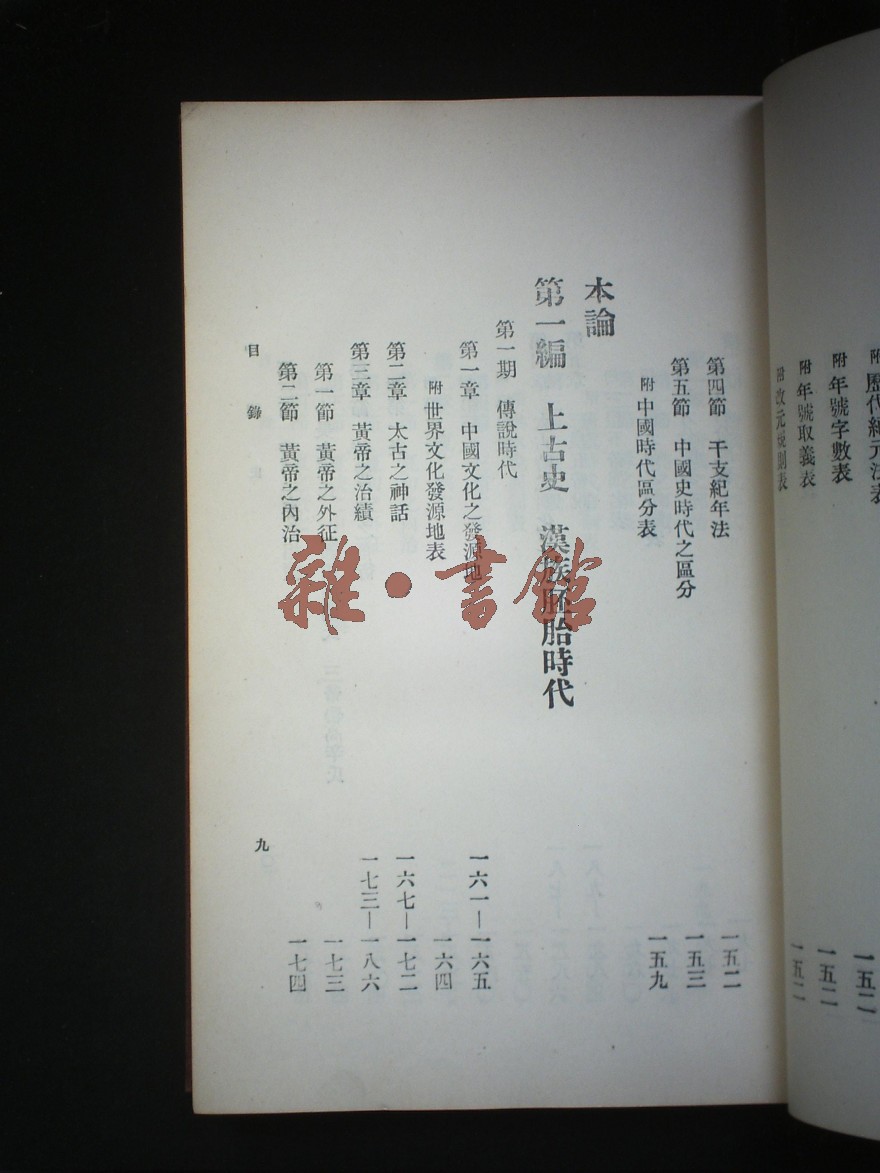 附 歷代紀元法表 一五二
附 年號字數表 一五二
附 年號取義表 一五二
附 改元規則表
第四節 干支紀年法 一五二
第五節 中國史時代之區分 一五三
附 中國時代區分表 一五九
本論
第一編 上古史 漢族胚胎時代
第一期 傳說時代
第一章 中國文化之發源地 一六一—一六五
附 世界文化發源地表 一六四
第二章 太古之神話 一六七—一七二
第三章 黃帝之治績 一七三—一八六
第一節 黃帝之外征 一七三
第二節 黃帝之內治 一七四
目錄 九
雜·書館